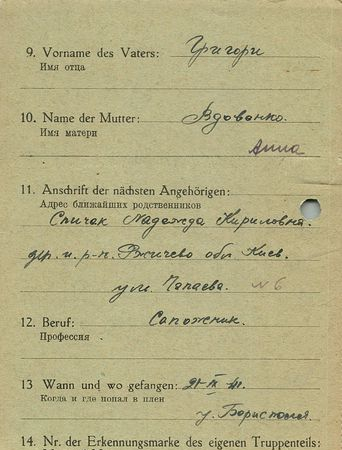 9. Vorname des Vaters: Григори
Имя отца
10. Name der Mutter: Вдовенко.
Имя матери
Анна
11. Anschrift der nächsten Angehörigen:
Адрес ближайших родственников
Спичак Надежда Кириловна.
дер. и р-н. Ржичево обл. Киев.
ул. Чапаева. N 6
12. Beruf: Сапожник.
Профессия
13 Wann und wo gefangen: 21-IX 41.
Когда и где попал в плен
у. Борисполя.
14. Nr. der Erkennungsmarke des eigenen Truppenteils: